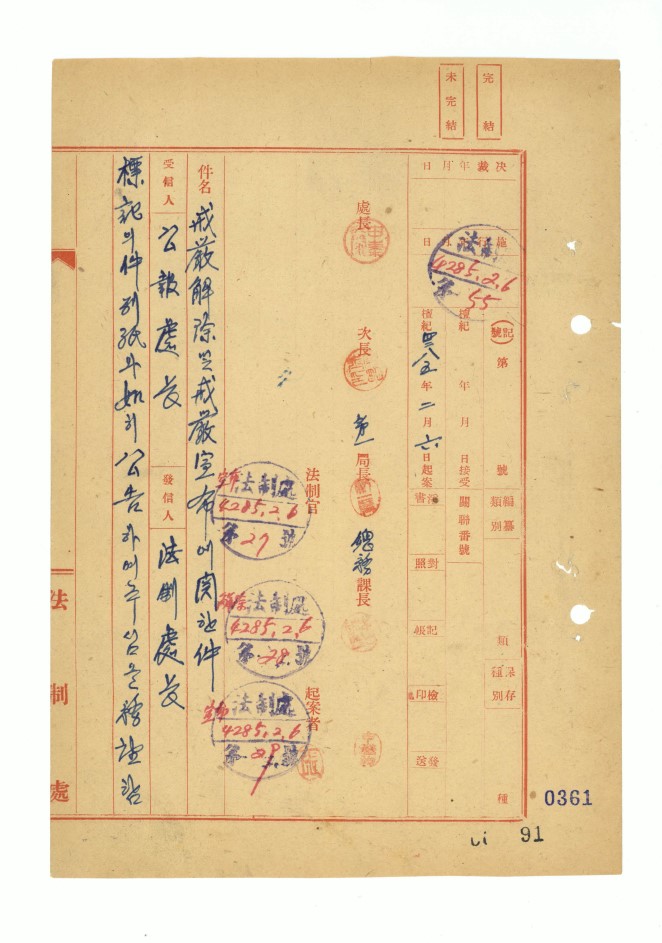 完結
未完結
決裁年月日
施行年月日
法制
4285.2.6
第55
記號
第 號
檀紀 年 月 日接受
檀紀四二八五年二月六日起案
編纂類別
類
保存種別
種
關聯番號
淨書
對照
記帳
檢印
發送
處長
次長
第一局長
總務課長
法制官
起案者
宣布
法制處
4285.2.6
第27號
解除
法制處
4285.2.6
第28號
宣布
法制處
4285.2.6
第29號
件名
戒嚴解除 및 戒嚴宣布에 関한 件
受信人
公報處長
發信人
法制處長
標記의 件 別紙와 如히 公告하여주심을 務望함
法制處
0361
91